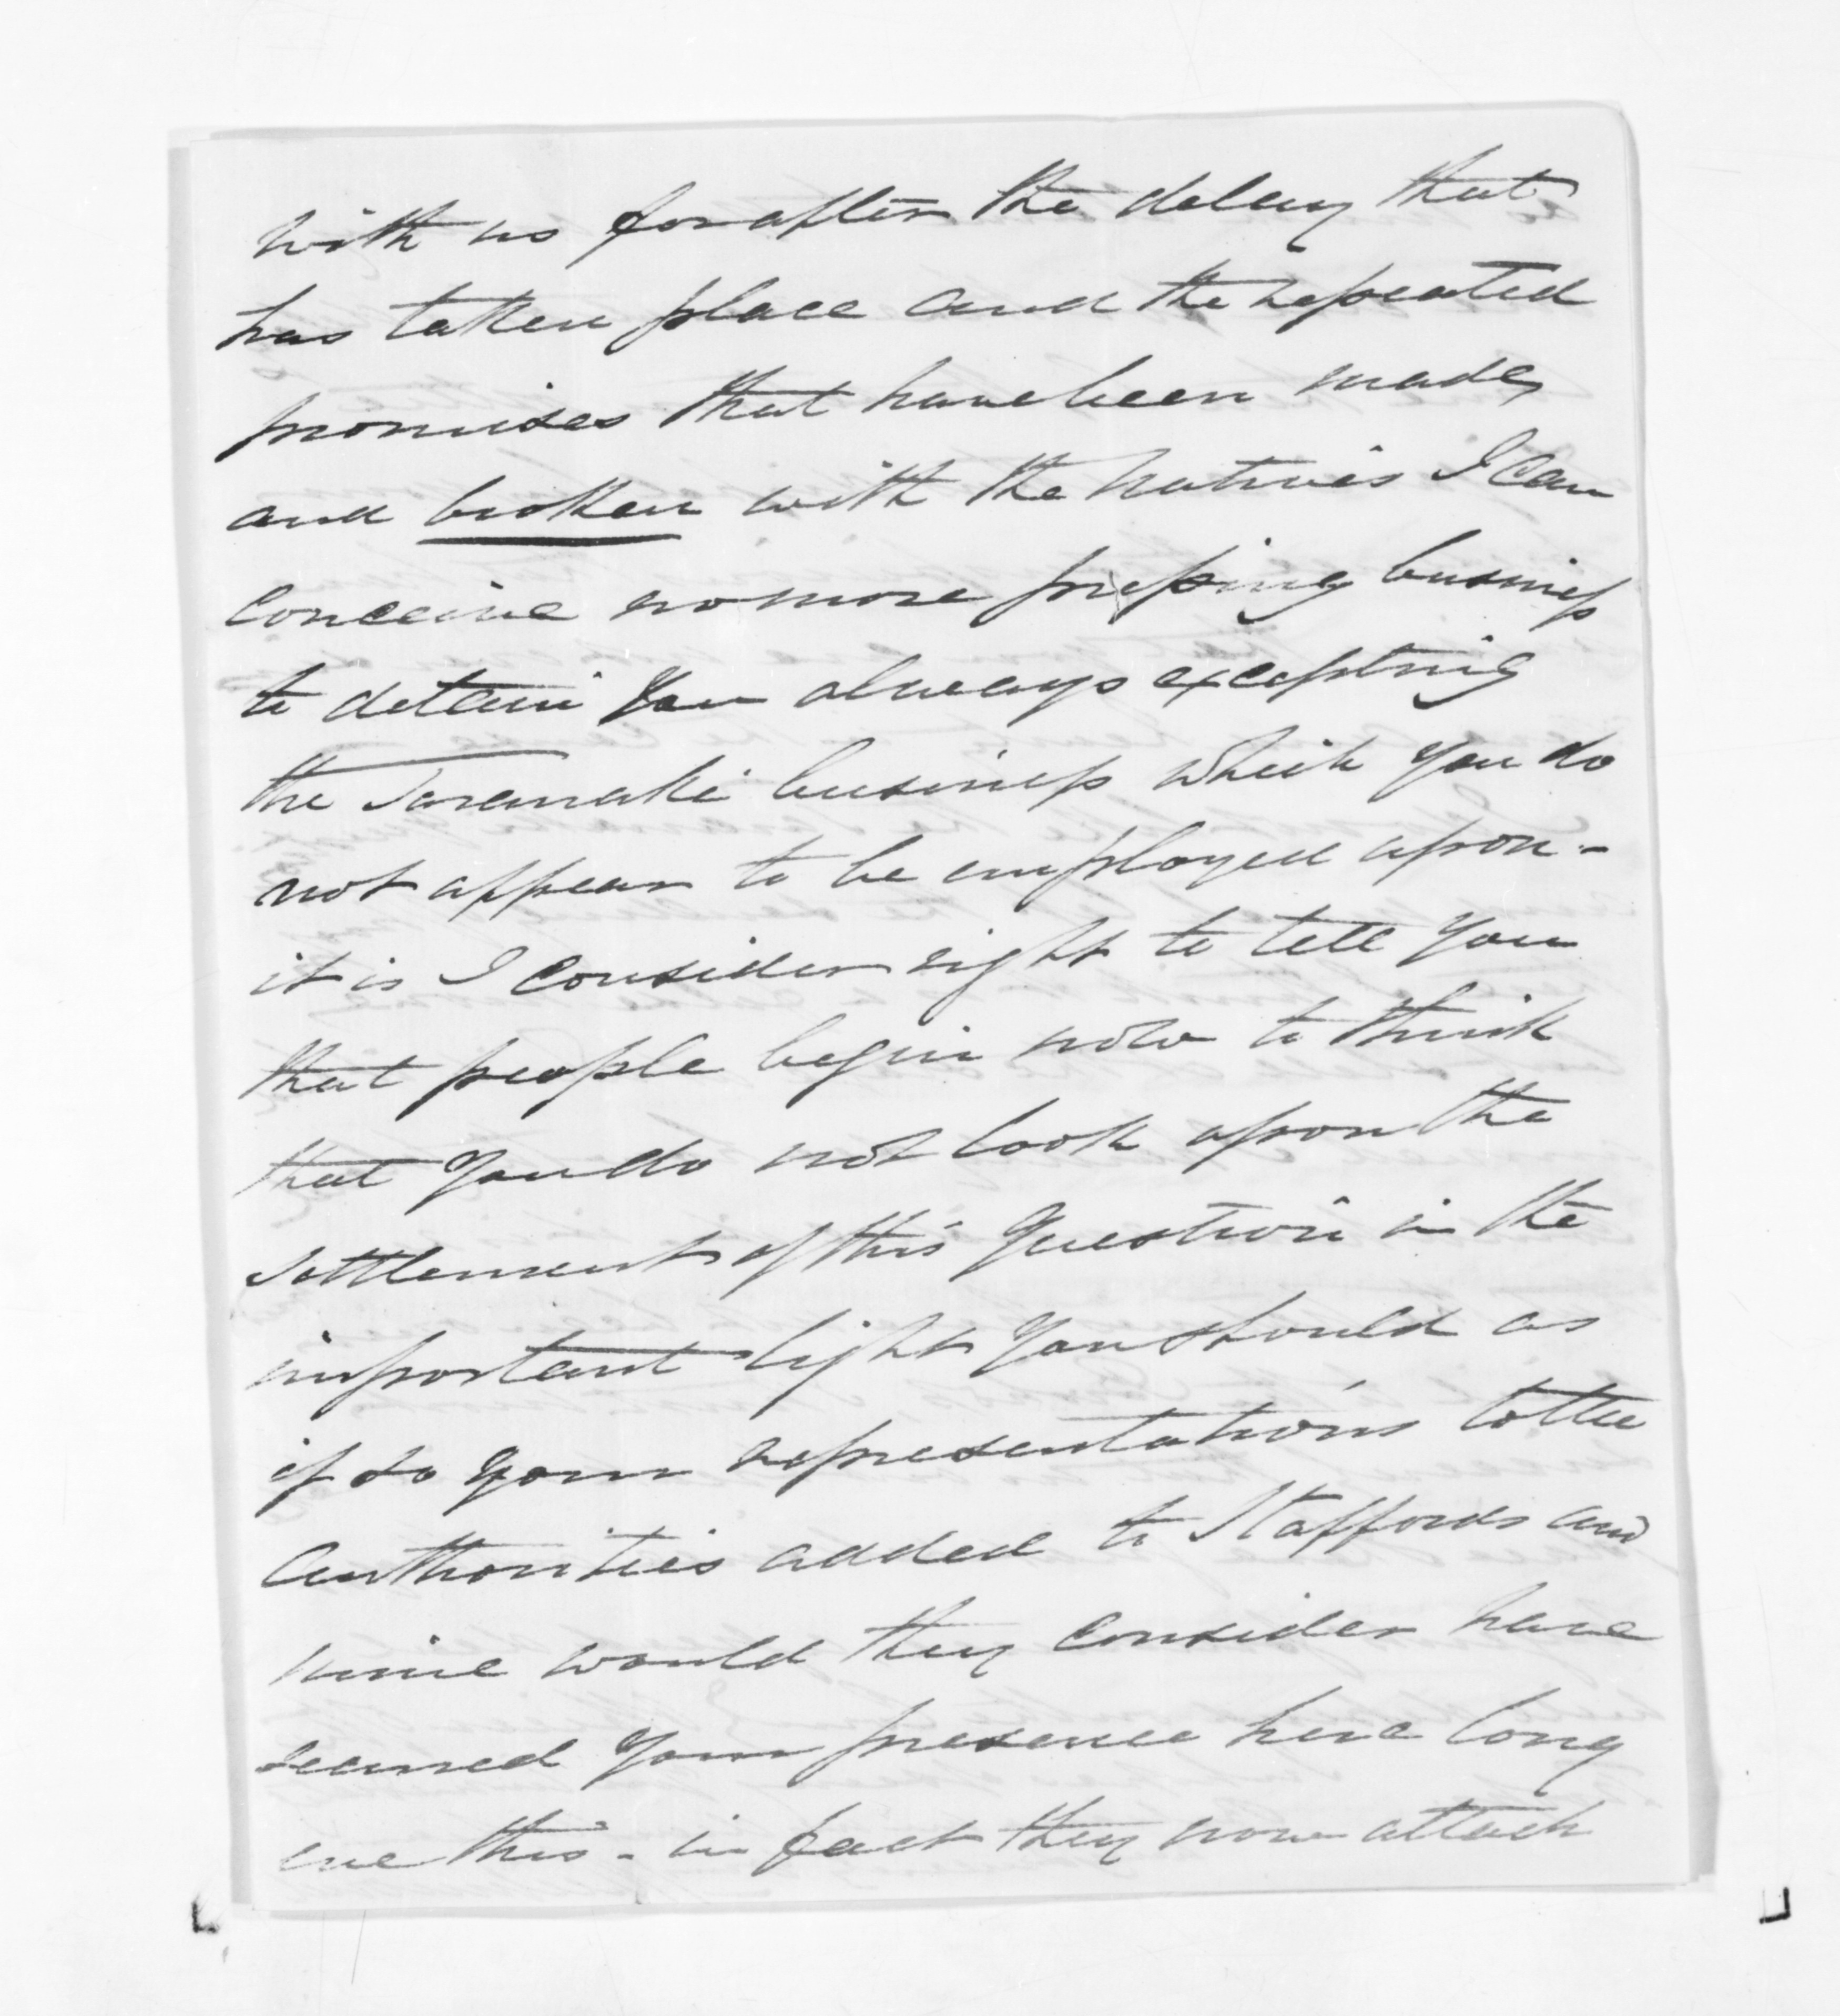 with us for after the delay that
has taken place and the repeated
promises that have been made,
and broken with the natives I can
conceive no more pressing business
to detain you always excepting
the Taranaki business which you do
not appear to be employed upon -
it is I consider right to tell you
that people begin now to think
that you do not look upon the
settlement of this question in the
important light you should as
if so your representations to the
authorities added to Staffords and
mine would they consider have
secured your presence here long
ere this - in fact they now attach